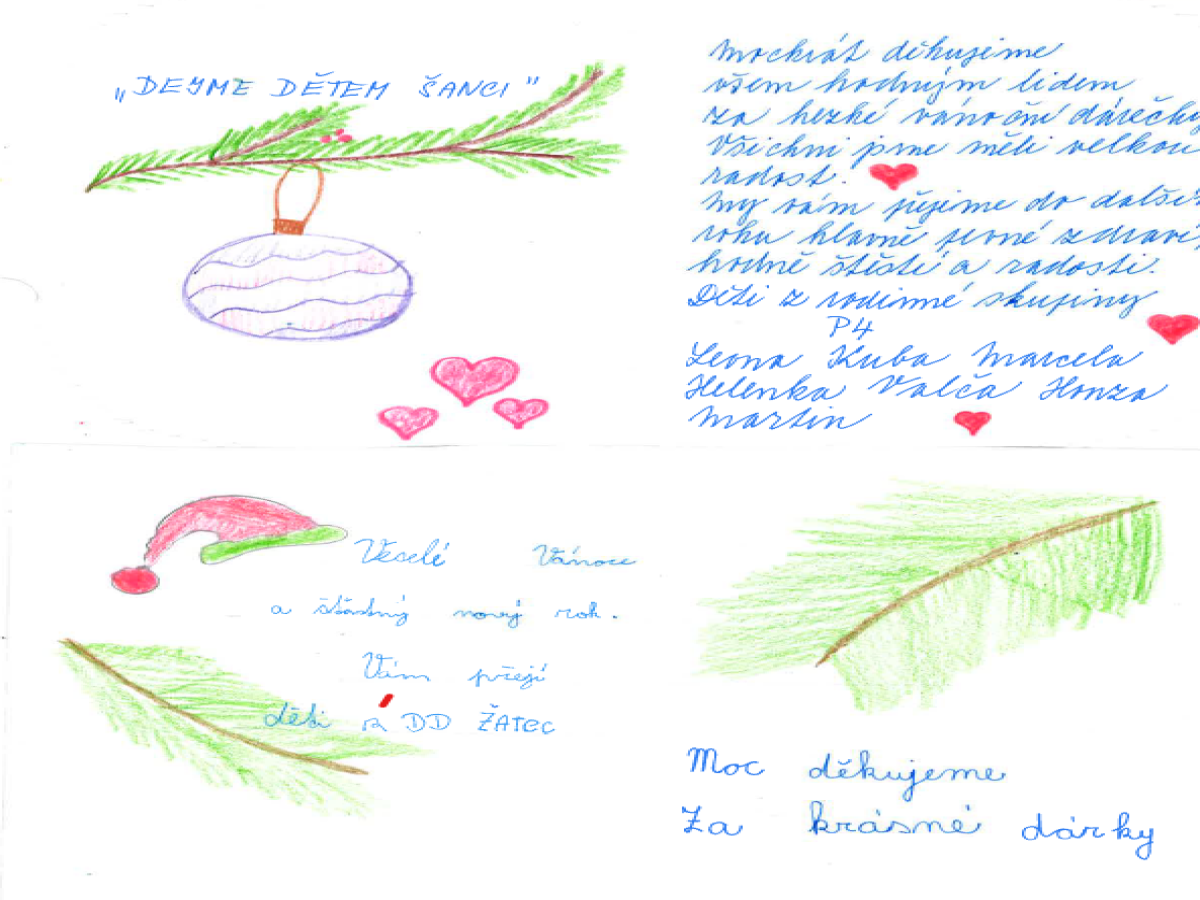 „DEJME DĚTEM ŠANCI"
Mockrát děkujeme
všem hodným lidem
za hezké vánoční dárečky
Všichni jsme měli velkou
radost.
My vám přejeme do dalšího
roku hlavně pevné zdraví,
hodně štěstí a radosti.
Děti z rodinné skupiny
P4
Leona Kuba Marcela
Helenka Valča Honza
Martin
Veselé Vánoce
a šťastný nový rok.
Vám přejí
děti z DD ŽATEC
Moc děkujeme
Za krásné dárky